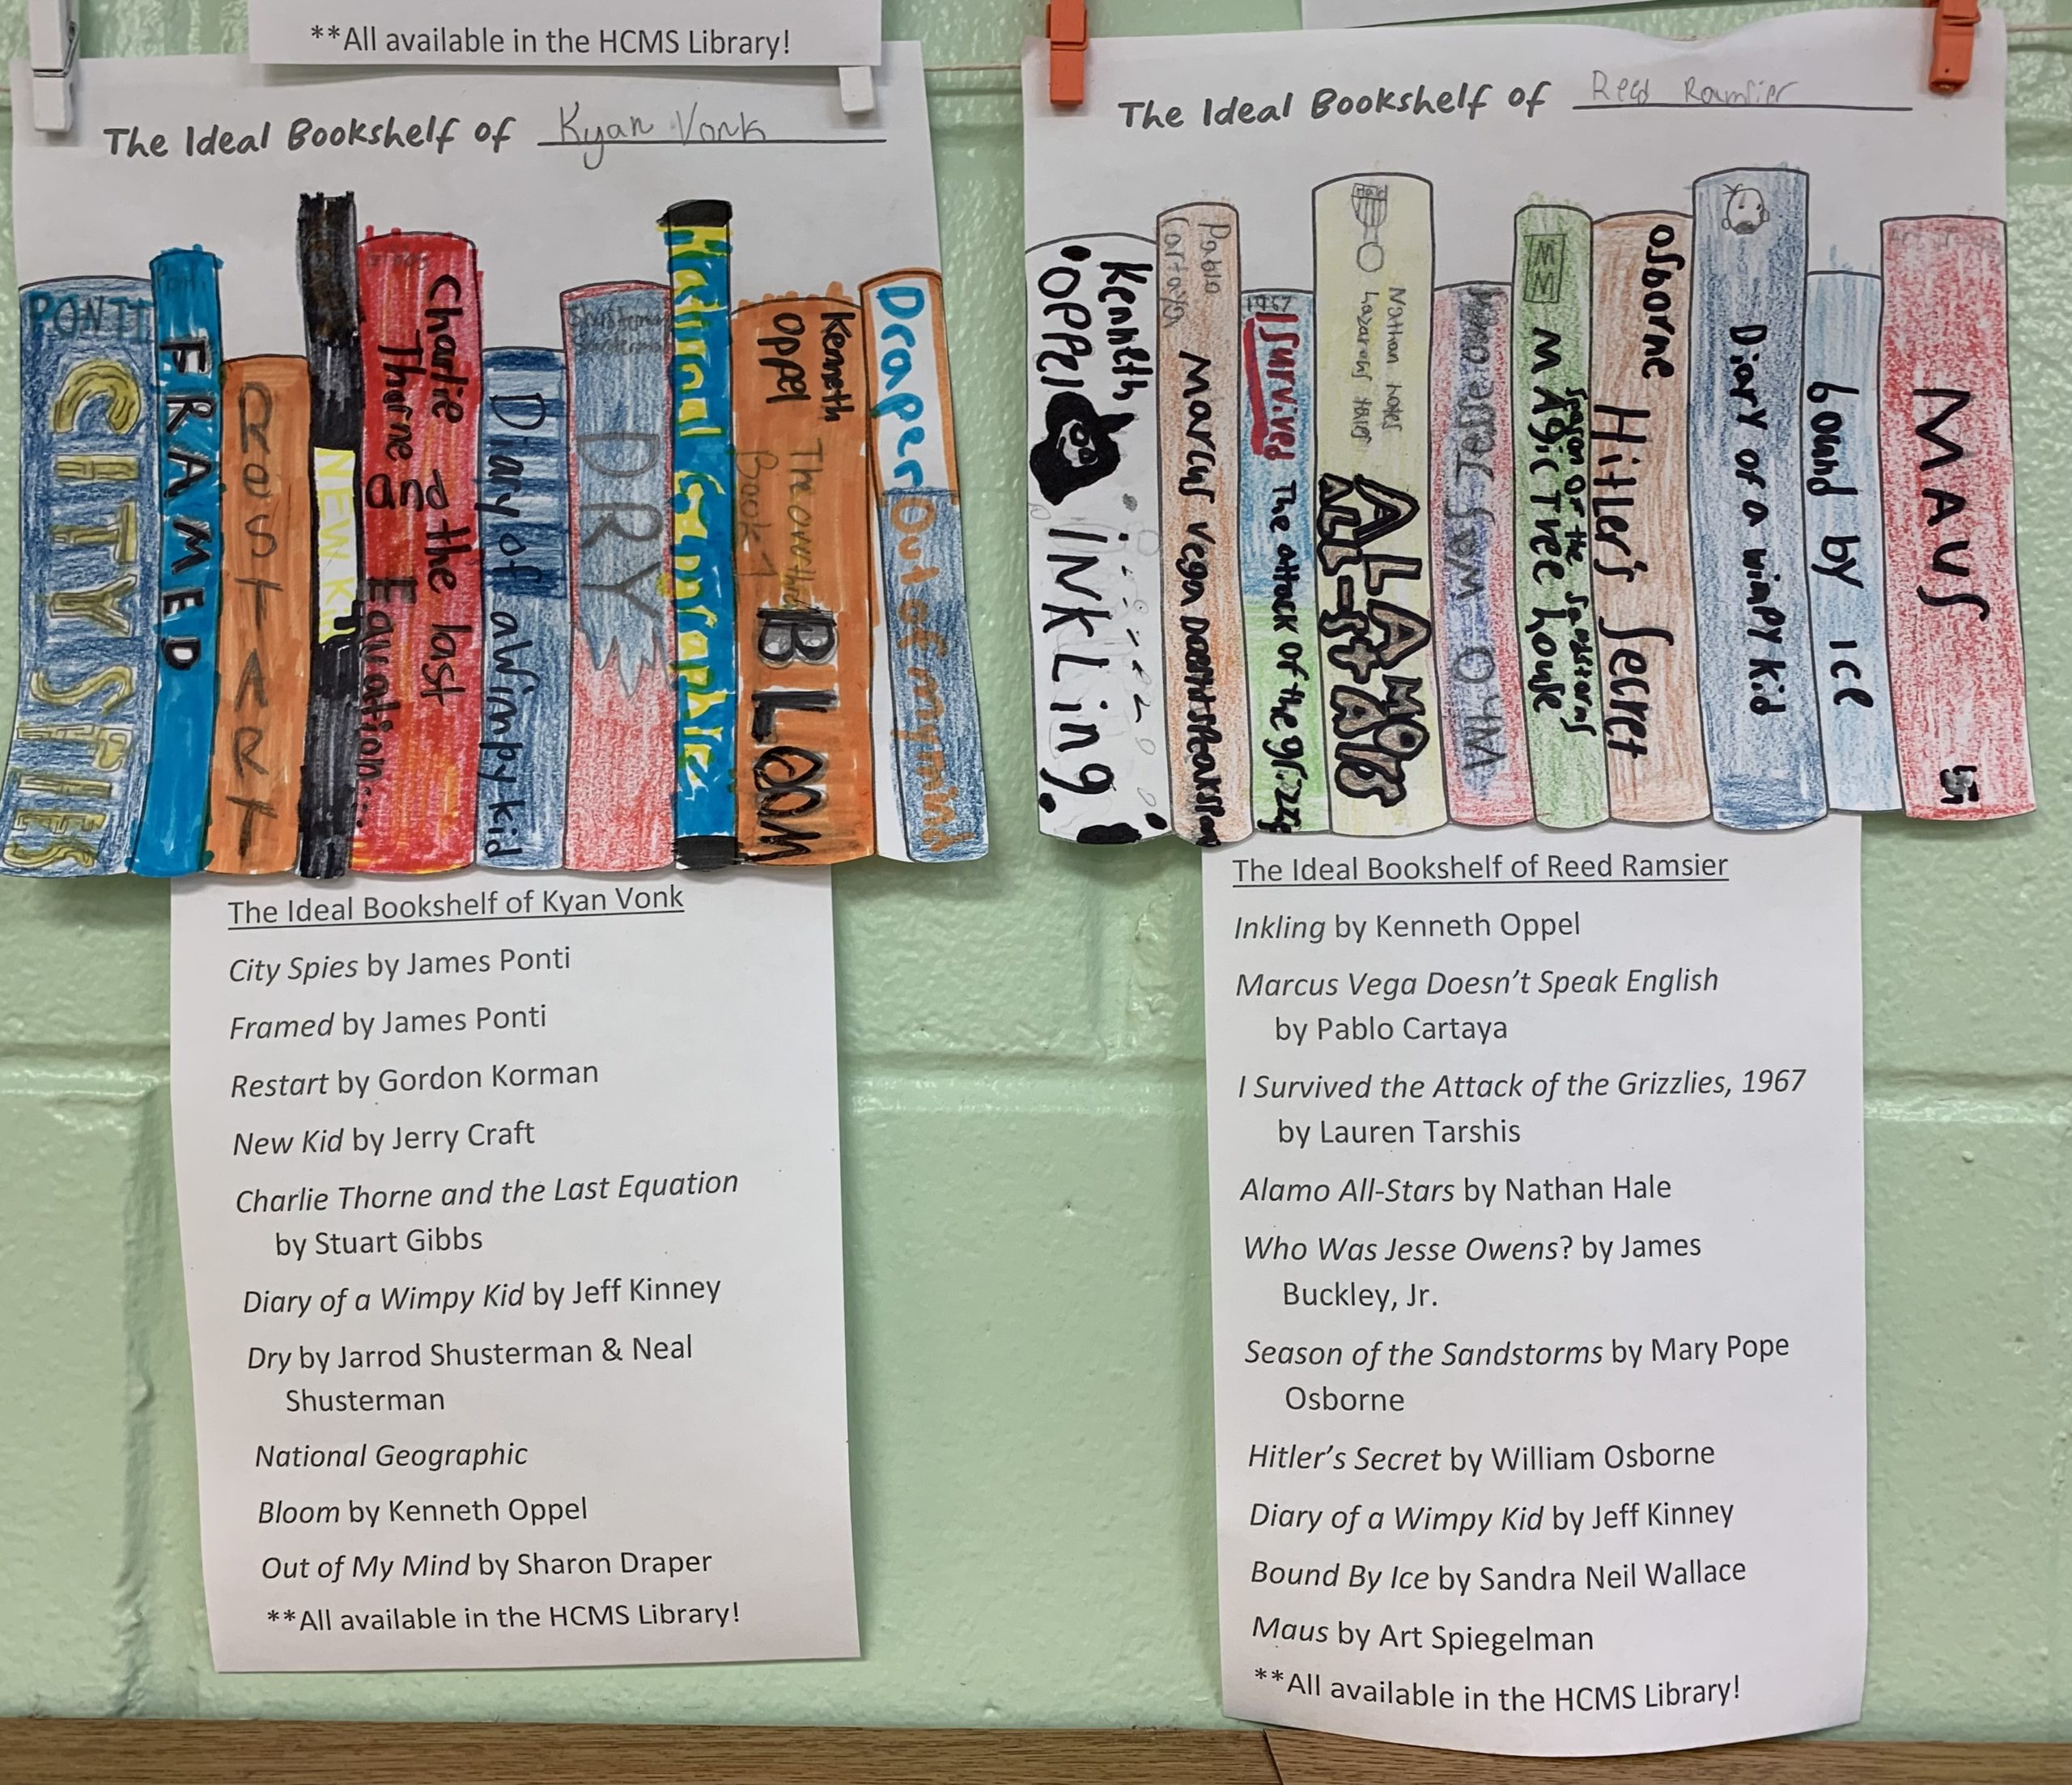 **All available in the HCMS Library!
The Ideal Bookshelf of Kyan Vonk
PONTI
CITY SPIES
FRAMED
RoSTART
NEW KI
Charlie Thorne and the last Equation...
Diary of a Wimpy kid
Shusterman
Shusterman
DRY
National Geographic
Kenneth Oppel
The overthrow
Book 1
BLOOM
Draper
Out of my mind
The Ideal Bookshelf of Kyan Vonk
City Spies by James Ponti
Framed by James Ponti
Restart by Gordon Korman
New Kid by Jerry Craft
Charlie Thorne and the Last Equation
by Stuart Gibbs
Diary of a Wimpy Kid by Jeff Kinney
Dry by Jarrod Shusterman & Neal
Shusterman
National Geographic
Bloom by Kenneth Oppel
Out of My Mind by Sharon Draper
**All available in the HCMS Library!
The Ideal Bookshelf of Reed Ramsier
Kenneth Oppel
INKLing
Pablo Cartaya
Marcus Vega
1967
I Survived
The attack of the grizzly
Nathan hales
hazardous tales
ALAMO
ALL-STARS
WHO was Jesse
MM
MAGic Tree house
Season Of the Sandstorms
osborne
Hitler's Secret
Diary of a wimpy kid
bound by ice
MAUS
The Ideal Bookshelf of Reed Ramsier
Inkling by Kenneth Oppel
Marcus Vega Doesn't Speak English
by Pablo Cartaya
I Survived the Attack of the Grizzlies, 1967
by Lauren Tarshis
Alamo All-Stars by Nathan Hale
Who Was Jesse Owens? by James
Buckley, Jr.
Season of the Sandstorms by Mary Pope
Osborne
Hitler's Secret by William Osborne
Diary of a Wimpy Kid by Jeff Kinney
Bound By Ice by Sandra Neil Wallace
Maus by Art Spiegelman
**All available in the HCMS Library!